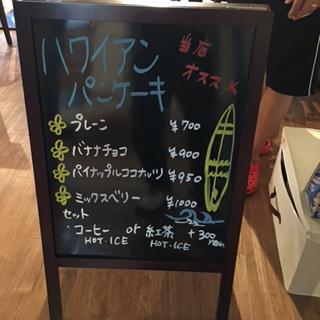 ハワイアン
パンケーキ
当店
オススメ
プレーン ¥700
バナナチョコ ¥900
パイナップルココナッツ ¥950
ミックスベリー ¥1000
セット
・コーヒー or 紅茶 +300yen
HOT・ICE HOT・ICE